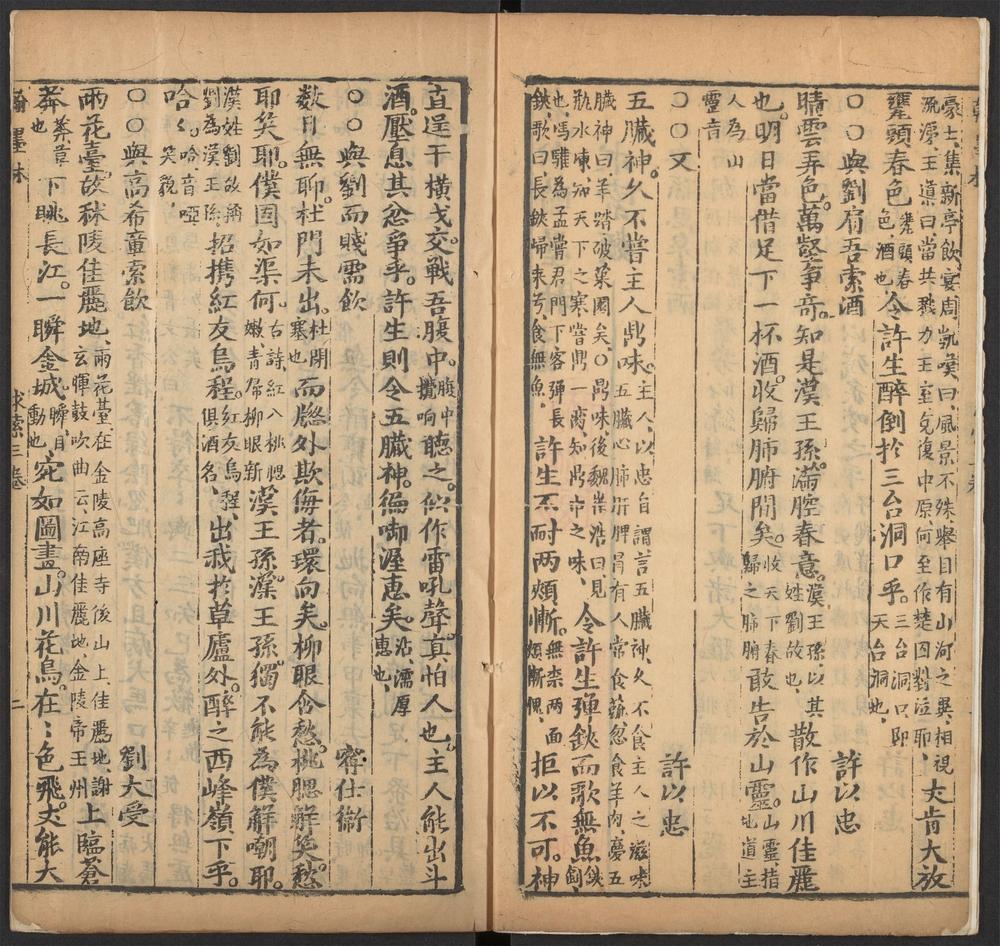 豪士集新亭飲宴周凱嘆曰風景不殊舉目有山河之異相視
流涕王導曰當共戮力王室克復中原何至作楚囚對泣耶
丈肯大放
甕頭春色
甕頭春
色酒也
令許生醉倒於三台洞口乎。
三台洞口即
天台洞也
○○與劉肩吾索酒　許以忠
晴雲弄色。萬壑爭奇。知是漢王孫滿腔春意。
漢王孫以其
姓劉故也
散作山川佳麗
也。明日當借足下一杯酒。收歸肺腑間矣。
收天下春
歸之肺腑
敢告於山靈。
山靈指
地道主
人為山
靈音
○○又　許以忠
五臟神。久不嘗主人鼎味。
主人以忠自謂言五臟神久不食主人之滋味
五臟心肺肝脾胃有人常食蔬忽食羊肉夢五
臟神曰羊踏破菜園矣○鼎味後魏崔浩曰見
瓶水凍知天下之寒嘗鼎一臠知鼎市之味
許生不耐兩頰慚。
無柰兩面
頰慚愧
令許生彈鋏而歌無魚
鋏劍
也馮驩為孟嘗君門下客彈長
鋏歌曰長鋏歸來兮食無魚
拒以不可。神
直逞干橫戈。交戰吾腹中。
腹中
攪响
聽之。似作雷吼聲。真怕人也。主人能出斗
酒。壓息其忿爭乎。許生則令五臟神。衘啣渥惠矣。
沾濡厚
惠也
○○與劉而賤需飲　甯仕衜
數日無聊。杜門未出。
杜閉
塞也
而牕外欺侮者。環向矣。柳眼含愁。桃腮解笑。愁
耶笑耶。僕固如渠何。
古詩紅入桃腮
嫩青歸柳眼新
漢王孫。漢王孫。獨不能為僕解嘲耶。
漢姓劉故稱
劉為漢王孫
招携紅友烏程。
紅友烏
程俱酒名
出我於草廬外。醉之西峰嶺下乎。
哈哈。
哈音啞
笑貌
○○與高希章索飲　劉大受
雨花臺。故秣陵佳麗地。
雨花臺在金陵高座寺後山上佳麗地謝
玄暉鼓吹曲云江南佳麗地金陵帝王州
上臨蒼
莽
莽草
也
下眺長江。一瞬金城。
瞬目
動也
宛如圖畫。山川花鳥。在在色飛。丈能大
翰墨林
求索三卷
二